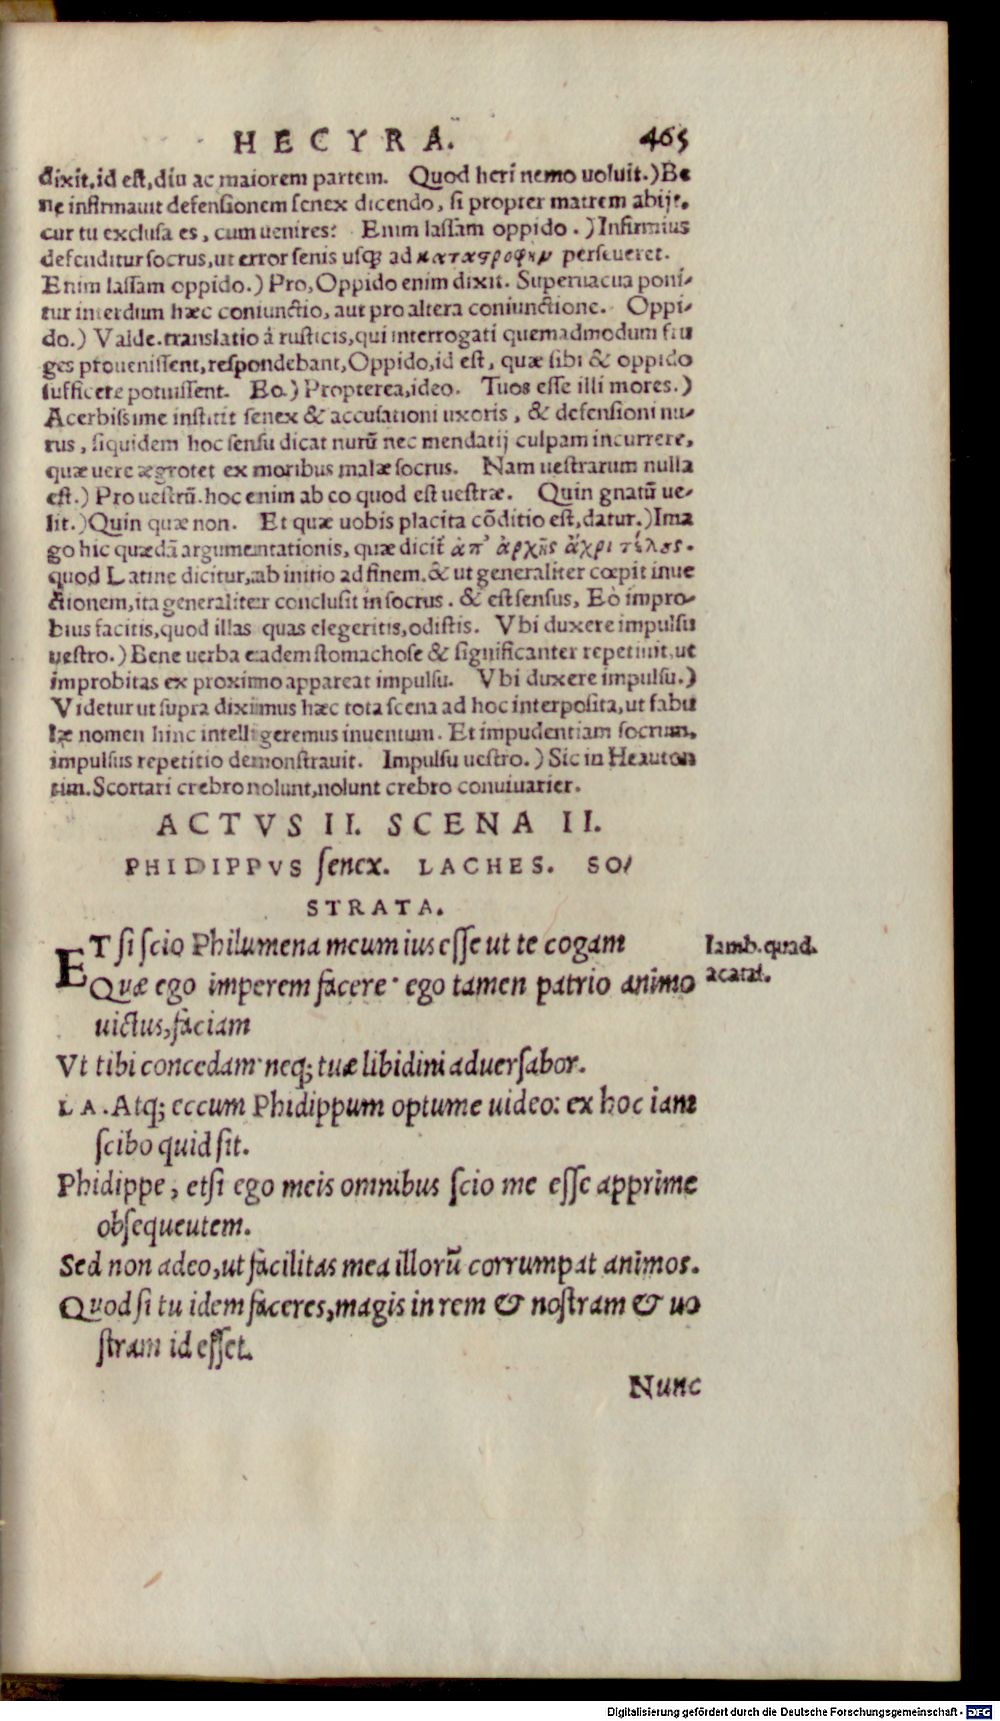 HECYRA. 465
dixit, id est, diu ac maiorem partem. Quod heri nemo uoluit.) Be
ne infirmauit defensionem senex dicendo, si propter matrem abijt,
cur tu exclusa es, cum uenires: Enim lassam oppido.) Infirmius
defenditur socrus, ut error senis usq; ad καταστροφὴν perseueret.
Enim lassam oppido.) Pro, Oppido enim dixit. Superuacua poni-
tur interdum hæc coniunctio, aut pro altera coniunctione. Oppi-
do.) Valde. translatio á rusticis, qui interrogati quemadmodum fru
ges prouenissent, respondebant, Oppido, id est, quæ sibi & oppido
sufficere potuissent. Eo.) Propterea, ideo. Tuos esse illi mores.)
Acerbissime institit senex & accusationi uxoris, & defensioni nu-
rus, siquidem hoc sensu dicat nurū nec mendatij culpam incurrere,
quæ uere ægrotet ex moribus malæ socrus. Nam uestrarum nulla
est.) Pro uestrū. hoc enim ab eo quod est uestræ. Quin gnatū ue-
lit.) Quin quæ non. Et quæ uobis placita cōditio est, datur.) Ima
go hic quædā argumentationis, quæ dicit̃ ἀπ' ἀρχῆς ἄχρι τέλους.
quod Latine dicitur, ab initio ad finem. & ut generaliter cœpit inue
ctionem, ita generaliter conclusit in socrus. & est sensus, Eò impro-
bius facitis, quod illas quas elegeritis, odistis. Vbi duxere impulsu
uestro.) Bene uerba eadem stomachose & significanter repetiuit, ut
improbitas ex proximo appareat impulsu. Vbi duxere impulsu.)
Videtur ut supra diximus hæc tota scena ad hoc interposita, ut fabu
læ nomen hinc intelligeremus inuentum. Et impudentiam socrum,
impulsus repetitio demonstrauit. Impulsu uestro.) Sic in Heauton
tim. Scortari crebro nolunt, nolunt crebro conuiuarier.
ACTVS II. SCENA II.
PHIDIPPVS senex. LACHES. SO/
STRATA.
ET si scio Philumena meum ius esse ut te cogam
Iamb. quad.
acatat.
Quæ ego imperem facere· ego tamen patrio animo
uictus, faciam
Vt tibi concedam· neq; tuæ libidini aduersabor.
LA. Atq; eccum Phidippum optume uideo: ex hoc iam
scibo quid sit.
Phidippe, etsi ego meis omnibus scio me esse apprime
obsequeutem.
Sed non adeo, ut facilitas mea illorū corrumpat animos.
Quod si tu idem faceres, magis in rem & nostram & uo
stram id esset.
Nunc
Digitalisierung gefördert durch die Deutsche Forschungsgemeinschaft - DFG